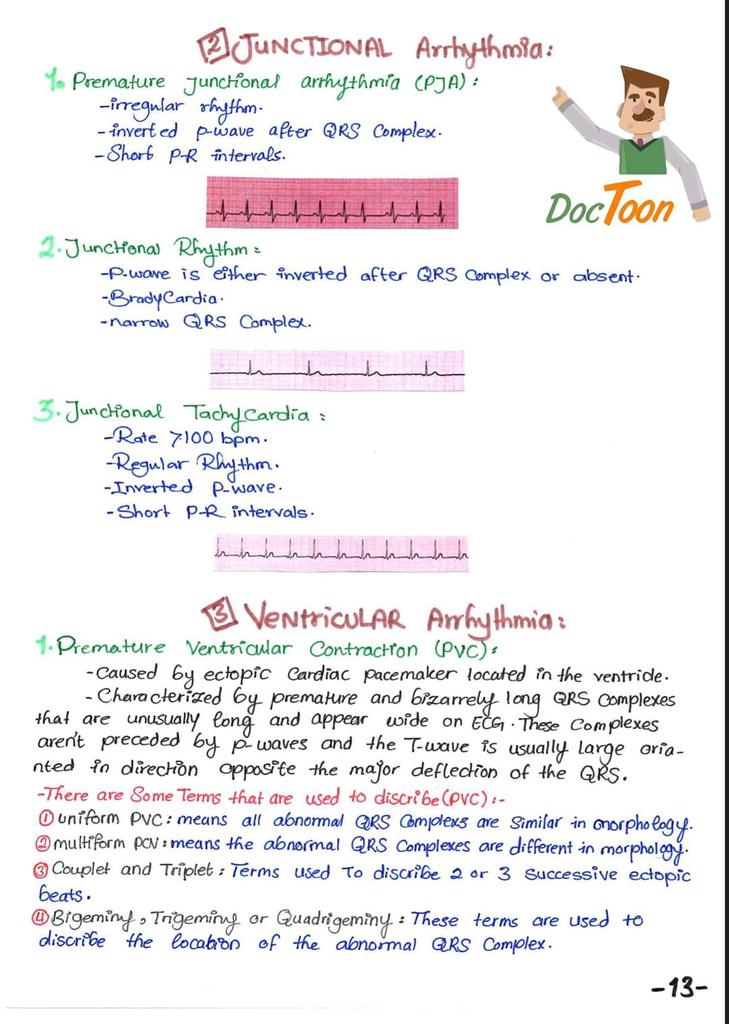 2 JUNCTIONAL Arrhythmia:
1. Premature Junctional arrhythmia (PJA):
-irregular rhythm.
-inverted p-wave after QRS Complex.
-Short P-R intervals.
DocToon
2. Junctional Rhythm:
-P-wave is either inverted after QRS Complex or absent.
-BradyCardia.
-narrow QRS Complex.
3. Junctional TachyCardia:
-Rate >100 bpm.
-Regular Rhythm.
-Inverted P-wave.
-Short P-R intervals.
3 VENTRICULAR Arrhythmia:
1. Premature Ventricular Contraction (PVC):
-Caused by ectopic Cardiac pacemaker located in the ventricle.
-Characterized by premature and bizarrely long QRS Complexes
that are unusually long and appear wide on ECG. These Complexes
aren't preceded by p-waves and the T-wave is usually large oria-
nted in direction opposite the major deflection of the QRS.
-There are Some Terms that are used to discribe (PVC):-
① uniform PVC: means all abnormal QRS Complexs are Similar in morphology.
② multiform PCV: means the abnormal QRS Complexes are different in morphology.
③ Couplet and Triplet: Terms used To discribe 2 or 3 Successive ectopic
beats.
④ Bigeminy, Trigeminy or Quadrigeminy: These terms are used to
discribe the location of the abnormal QRS Complex.
-13-